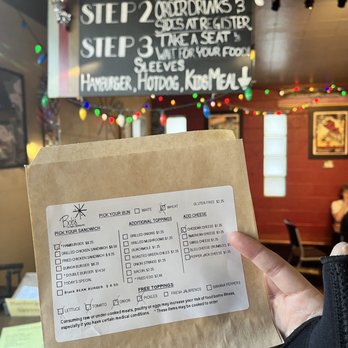 STEP 2 ORDER DRINKS &
SIDES AT REGISTER
STEP 3 TAKE A SEAT &
WAIT FOR YOUR FOOD!
SLEEVES
HAMBURGER, HOTDOG, KIDS MEAL
PICK YOUR BUN WHITE WHEAT GLUTEN FREE
PICK YOUR SANDWICH
HAMBURGER
GRILLED CHICKEN SANDWICH
FRIED CHICKEN SANDWICH
* DOUBLE BURGER
TODAY'S SPECIAL
BLACK BEAN BURGER
ADDITIONAL TOPPINGS
GRILLED ONIONS
GRILLED MUSHROOMS
GUACAMOLE
ROASTED GREEN CHILES
ONION STRAWS
BACON
* FRIED EGG
ADD CHEESE
CHEDDAR CHEESE
AMERICAN CHEESE
SWISS CHEESE
BLEU CHEESE CRUMBLES
PEPPER JACK CHEESE
FREE TOPPINGS
LETTUCE TOMATO ONION PICKLES FRESH JALAPENOS BANANA PEPPERS
Consuming raw or under-cooked meats, poultry or eggs may increase your risk of food borne illness,
especially if you have certain medical conditions. * These items may be cooked to order